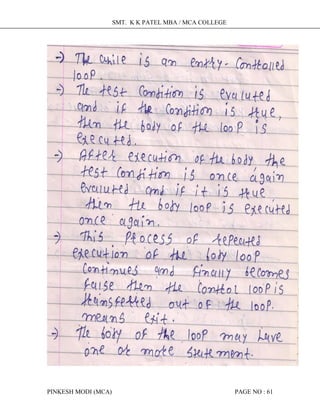 SMT. K K PATEL MBA / MCA COLLEGE
→) The while is an entry-Controlled
loop.
→) The test Condition is evaluted
and if the Condition is true,
then the body of the loop is
executed.
→) After execution of the body the
test Condition is once again
evaluted and if it is true
then the body loop is executed
once again.
→) This process of repeated
execution of the body loop
Continues and finally becomes
false then the Control loop is
transferred out of the loop.
means exit.
→) The body of the loop may have
one or more statement.
PINKESH MODI (MCA) PAGE NO : 61